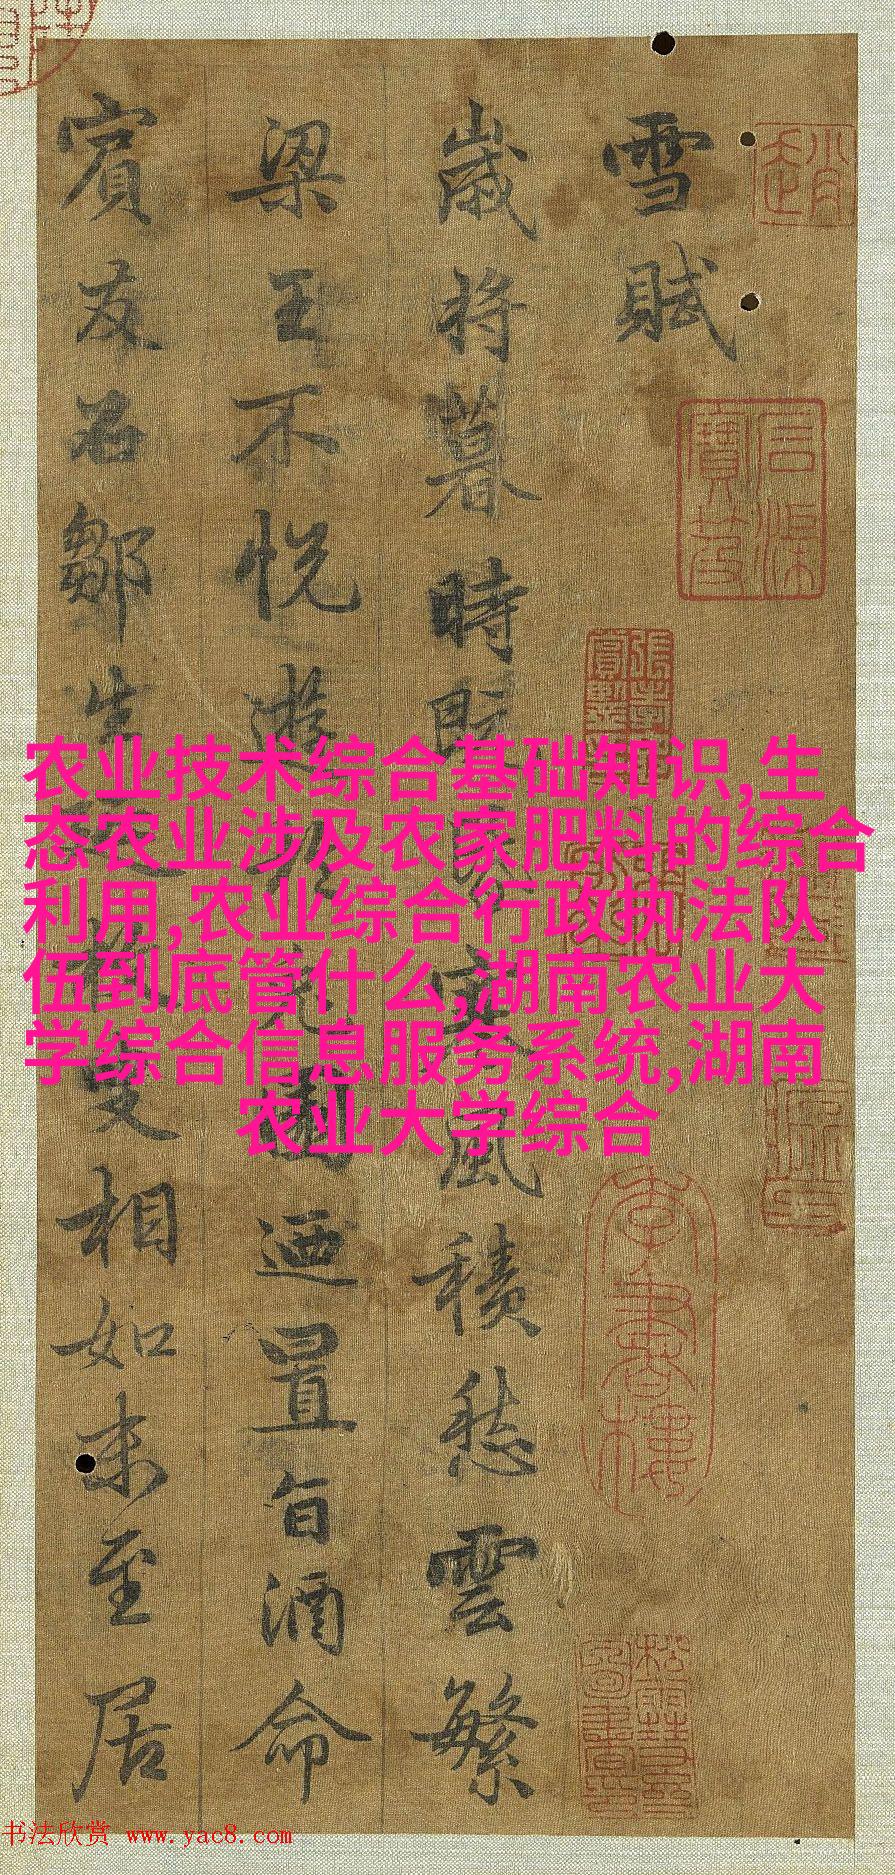 雪賦
歲將暮時既昏寒風積愁雲繁
梁王不悅游於兔園迺置旨酒命
賓友召鄒生延枚叟相如末至居
农业技术综合基础知识,生
态农业涉及农家肥料的综合
利用,农业综合行政执法队
伍到底管什么,湖南农业大
学综合信息服务系统,湖南
农业大学综合
书法欣赏 www.yac8.com